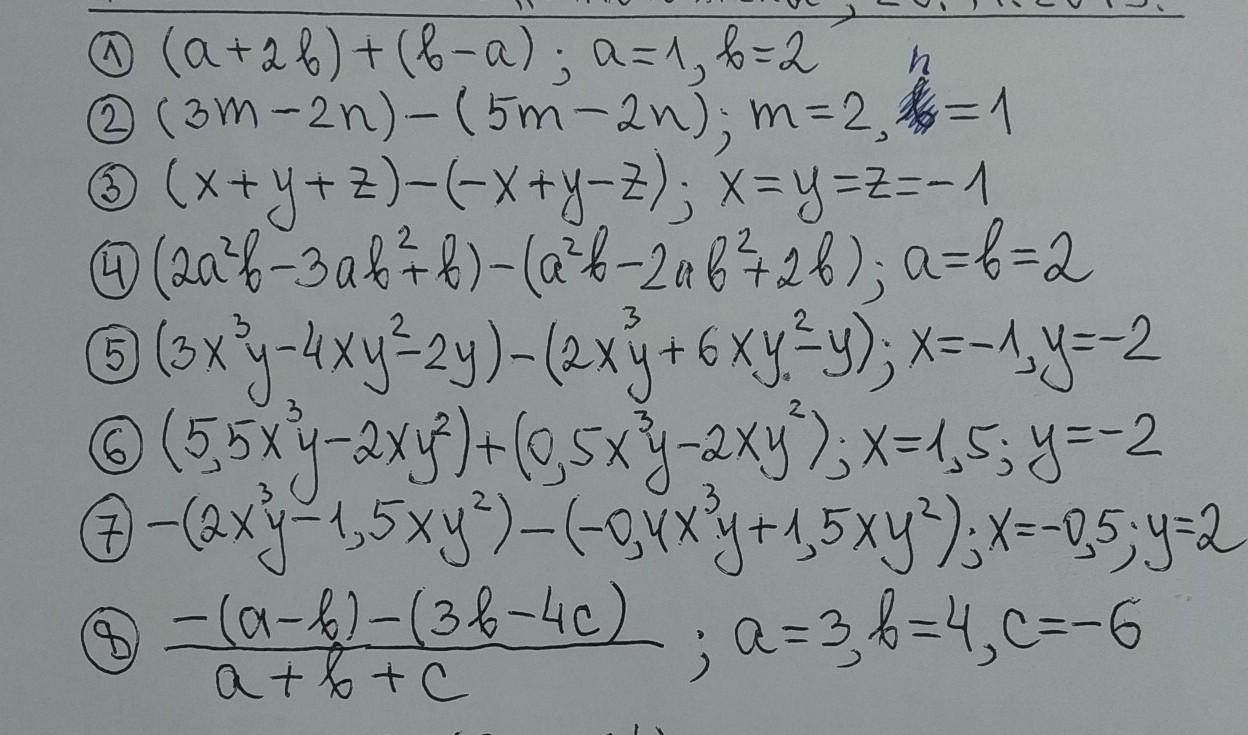 ① (a+2b)+(b-a); a=1, b=2
② (3m-2n)-(5m-2n); m=2, n=1
③ (x+y+z)-(-x+y-z); x=y=z=-1
④ (2a²b-3ab²+b)-(a²b-2ab²+2b); a=b=2
⑤ (3x³y-4xy²-2y)-(2x³y+6xy²-y); x=-1, y=-2
⑥ (5,5x³y-2xy²)+(0,5x³y-2xy²); x=1,5; y=-2
⑦ -(2x³y-1,5xy²)-(-0,4x³y+1,5xy²); x=-0,5; y=2
⑧ \frac{-(a-b)-(3b-4c)}{a+b+c}; a=3, b=4, c=-6